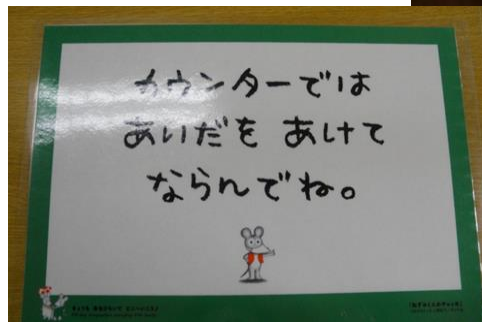 カウンターでは
あいだを あけて
ならんでね。